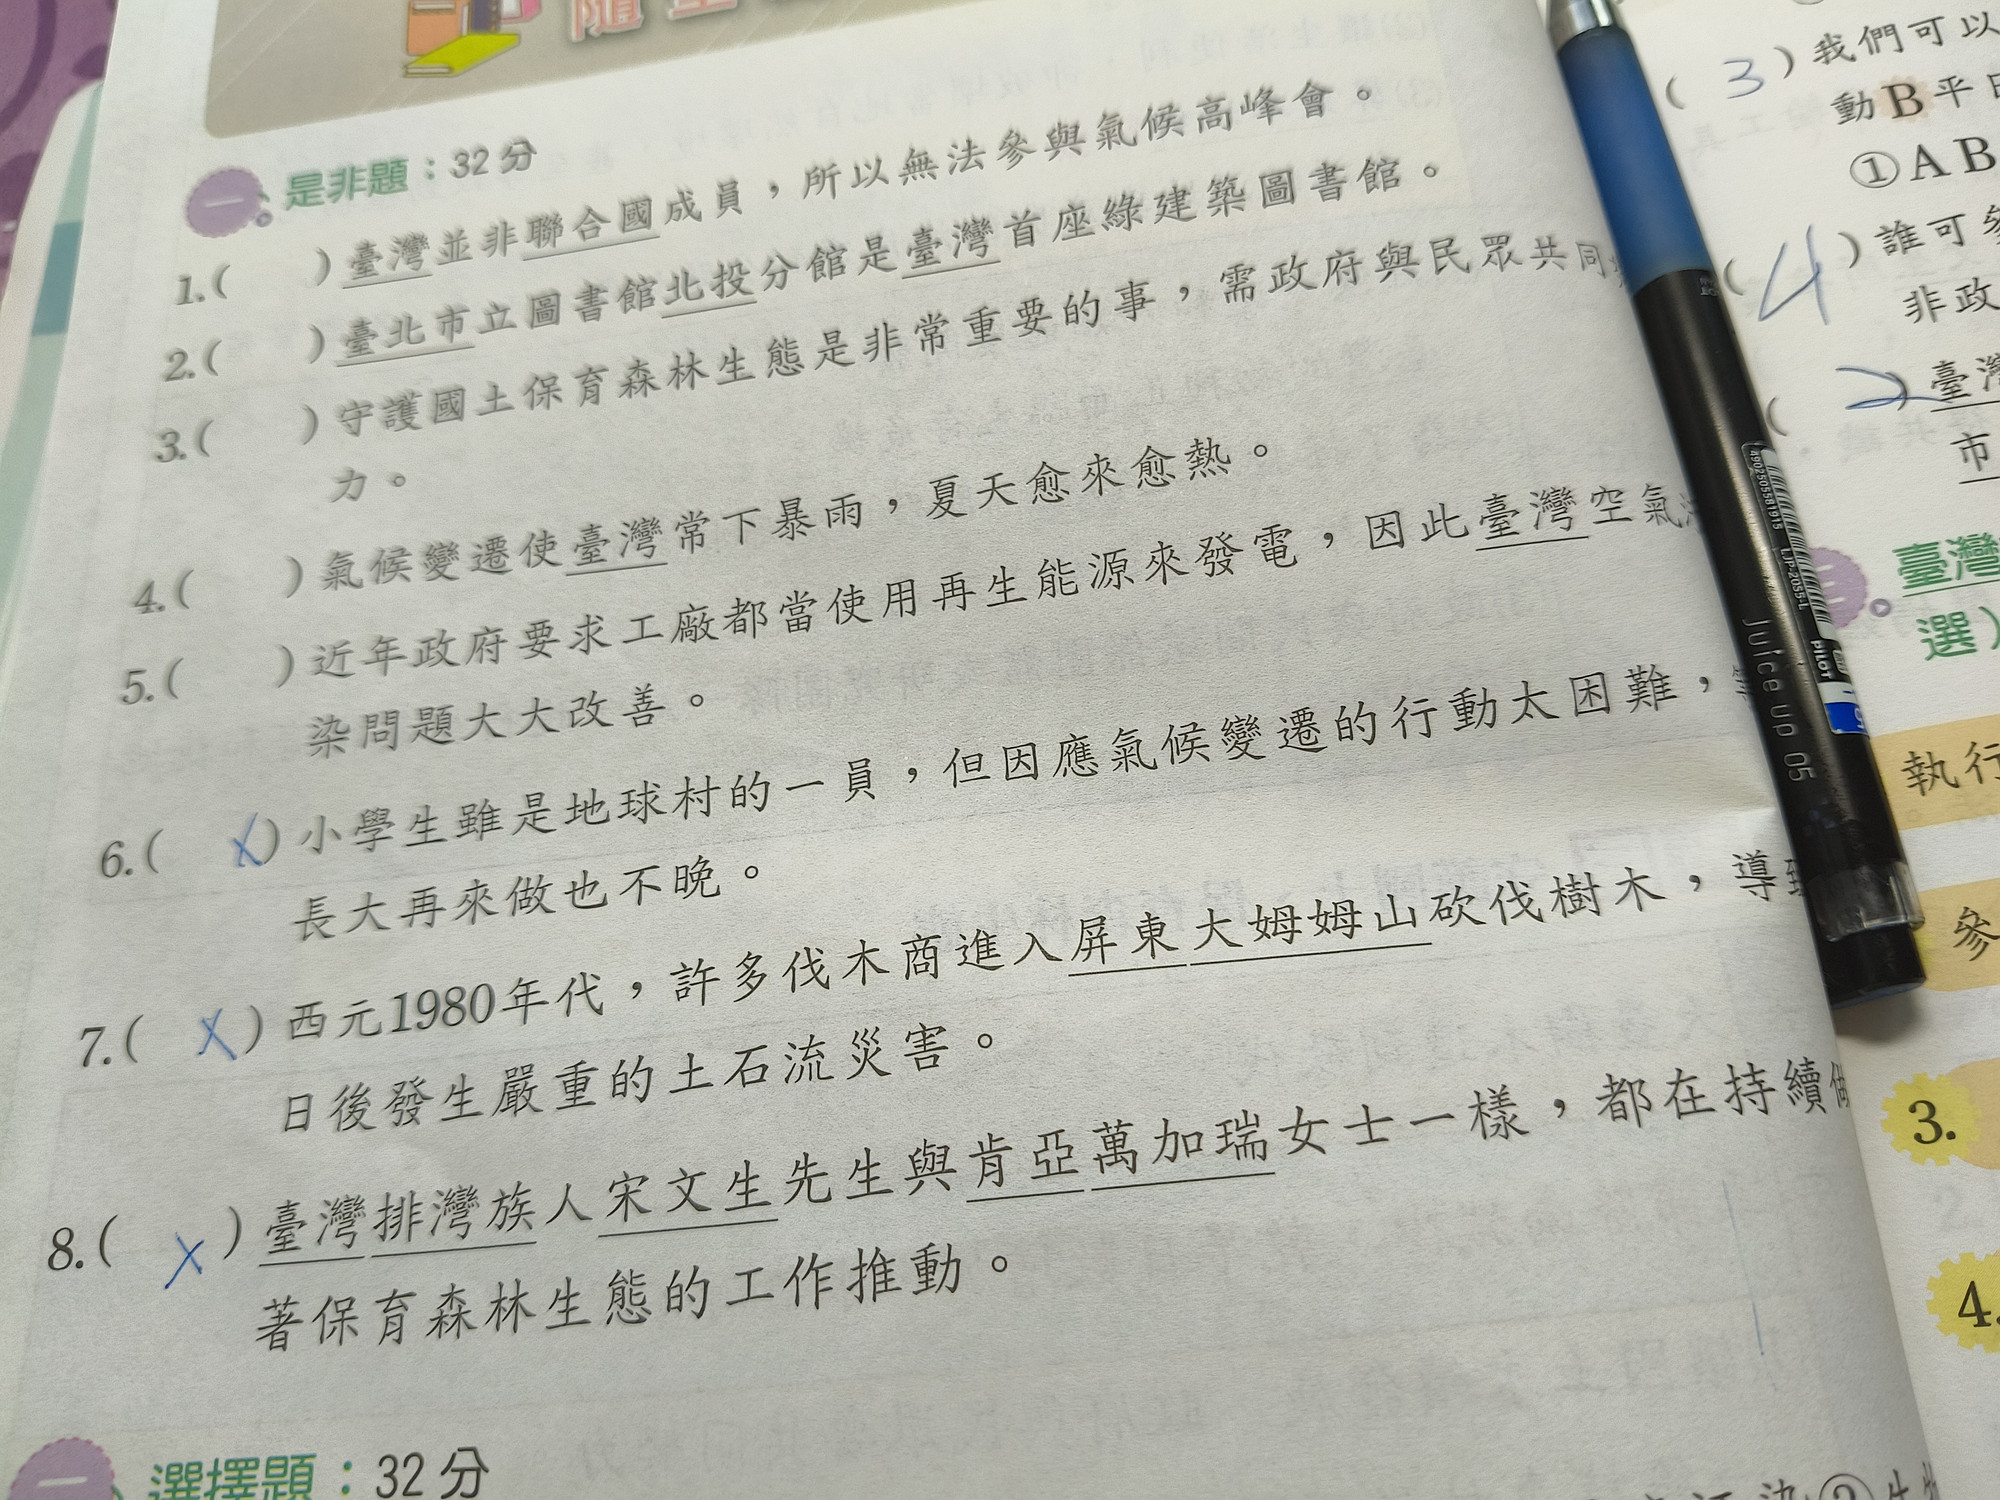 隨堂
一 是非題：32分
1.( )臺灣並非聯合國成員，所以無法參與氣候高峰會。
2.( )臺北市立圖書館北投分館是臺灣首座綠建築圖書館。
3.( )守護國土保育森林生態是非常重要的事，需政府與民眾共同
力。
4.( )氣候變遷使臺灣常下暴雨，夏天愈來愈熱。
5.( )近年政府要求工廠都當使用再生能源來發電，因此臺灣空氣
染問題大大改善。
6.( X )小學生雖是地球村的一員，但因應氣候變遷的行動太困難，
長大再來做也不晚。
7.( X )西元1980年代，許多伐木商進入屏東大姆姆山砍伐樹木，導致
日後發生嚴重的土石流災害。
8.( X )臺灣排灣族人宋文生先生與肯亞萬加瑞女士一樣，都在持續做
著保育森林生態的工作推動。
選擇題：32分
( 3 )我們可以
動B平日
①AB
( 4 )誰可參
非政
( 2 )臺灣
市
三 臺灣
選）
執行
參
3.
4.
4902505581915 LJP-20S5-L
PILOT
Juice up 05